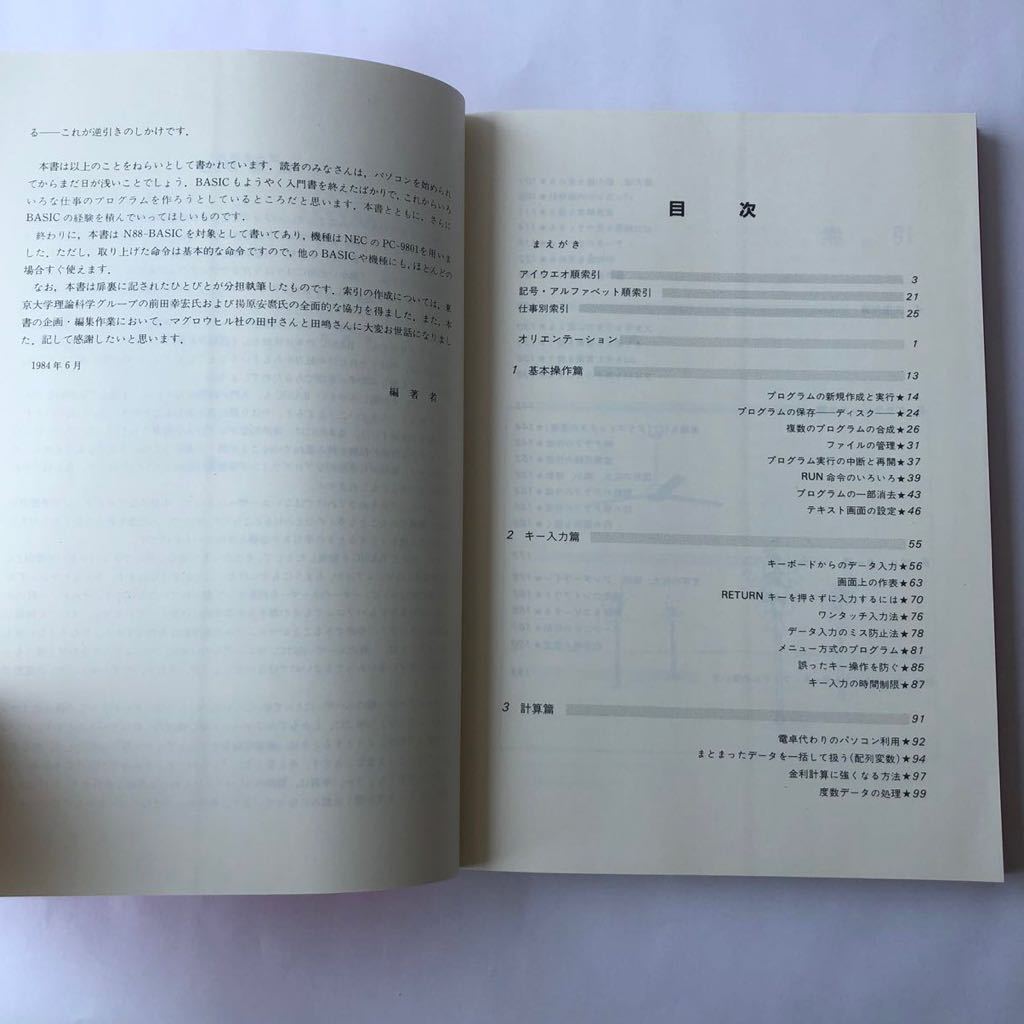 る——これが逆引きのしかけです．
本書は以上のことをねらいとして書かれています．読者のみなさんは，パソコンを始められ
てからまだ日が浅いことでしょう．BASICもようやく入門書を終えたばかりで，これからいろ
いろな仕事のプログラムを作ろうとしているところだと思います．本書とともに，さらに
BASICの経験を積んでいってほしいものです．
終わりに，本書はN88-BASICを対象として書いてあり，機種はNECのPC-9801を用いま
した．ただし，取り上げた命令は基本的な命令ですので，他のBASICや機種にも，ほとんどの
場合すぐ使えます．
なお，本書は扉裏に記されたひとびとが分担執筆したものです．索引の作成については，東
京大学理論科学グループの前田幸宏氏および揚原安麿氏の全面的な協力を得ました．また，本
書の企画・編集作業において，マグロウヒル社の田中さんと田嶋さんに大変お世話になりまし
た．記して感謝したいと思います．
1984年6月
編著者
目次
まえがき
アイウエオ順索引 3
記号・アルファベット順索引 21
仕事別索引 25
オリエンテーション 1
1 基本操作篇 13
プログラムの新規作成と実行★14
プログラムの保存——ディスク——★24
複数のプログラムの合成★26
ファイルの管理★31
プログラム実行の中断と再開★37
RUN命令のいろいろ★39
プログラムの一部消去★43
テキスト画面の設定★46
2 キー入力篇 55
キーボードからのデータ入力★56
画面上の作表★63
RETURNキーを押さずに入力するには★70
ワンタッチ入力法★76
データ入力のミス防止法★78
メニュー方式のプログラム★81
誤ったキー操作を防ぐ★85
キー入力の時間制限★87
3 計算篇 91
電卓代わりのパソコン利用★92
まとまったデータを一括して扱う(配列変数)★94
金利計算に強くなる方法★97
度数データの処理★99